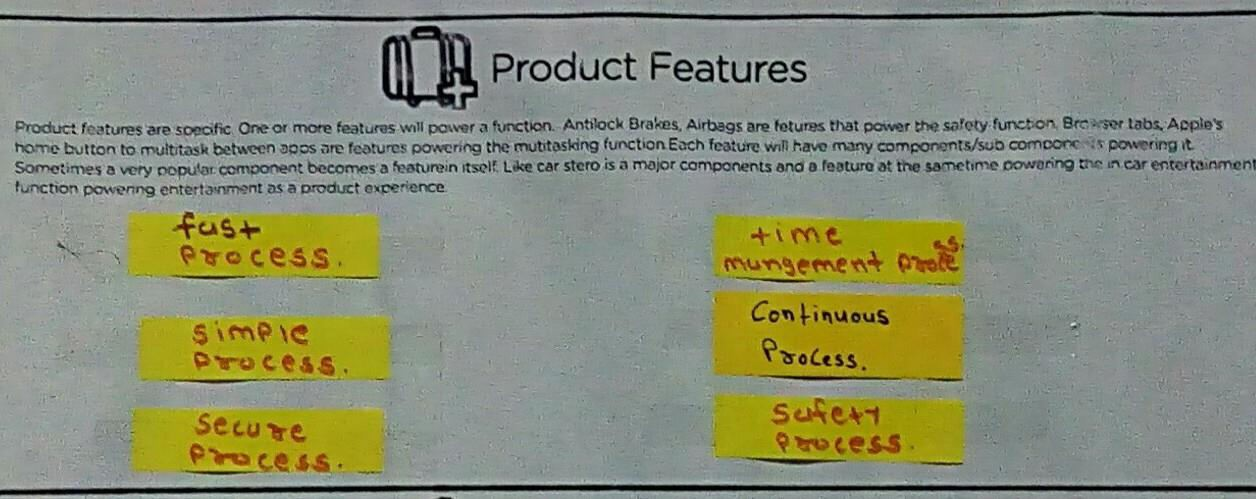 Product Features
Product features are specific. One or more features will power a function. Antilock Brakes, Airbags are fetures that power the safety function. Browser tabs, Apple's
home button to multitask between apps are features powering the mutitasking function.Each feature will have many components/sub components powering it.
Sometimes a very popular component becomes a featurein itself. Like car stero is a major components and a feature at the sametime powering the in car entertainment
function powering entertainment as a product experience.
fast
process.
simple
process.
secure
process.
time
mungement process.
Continuous
Process.
safety
process.